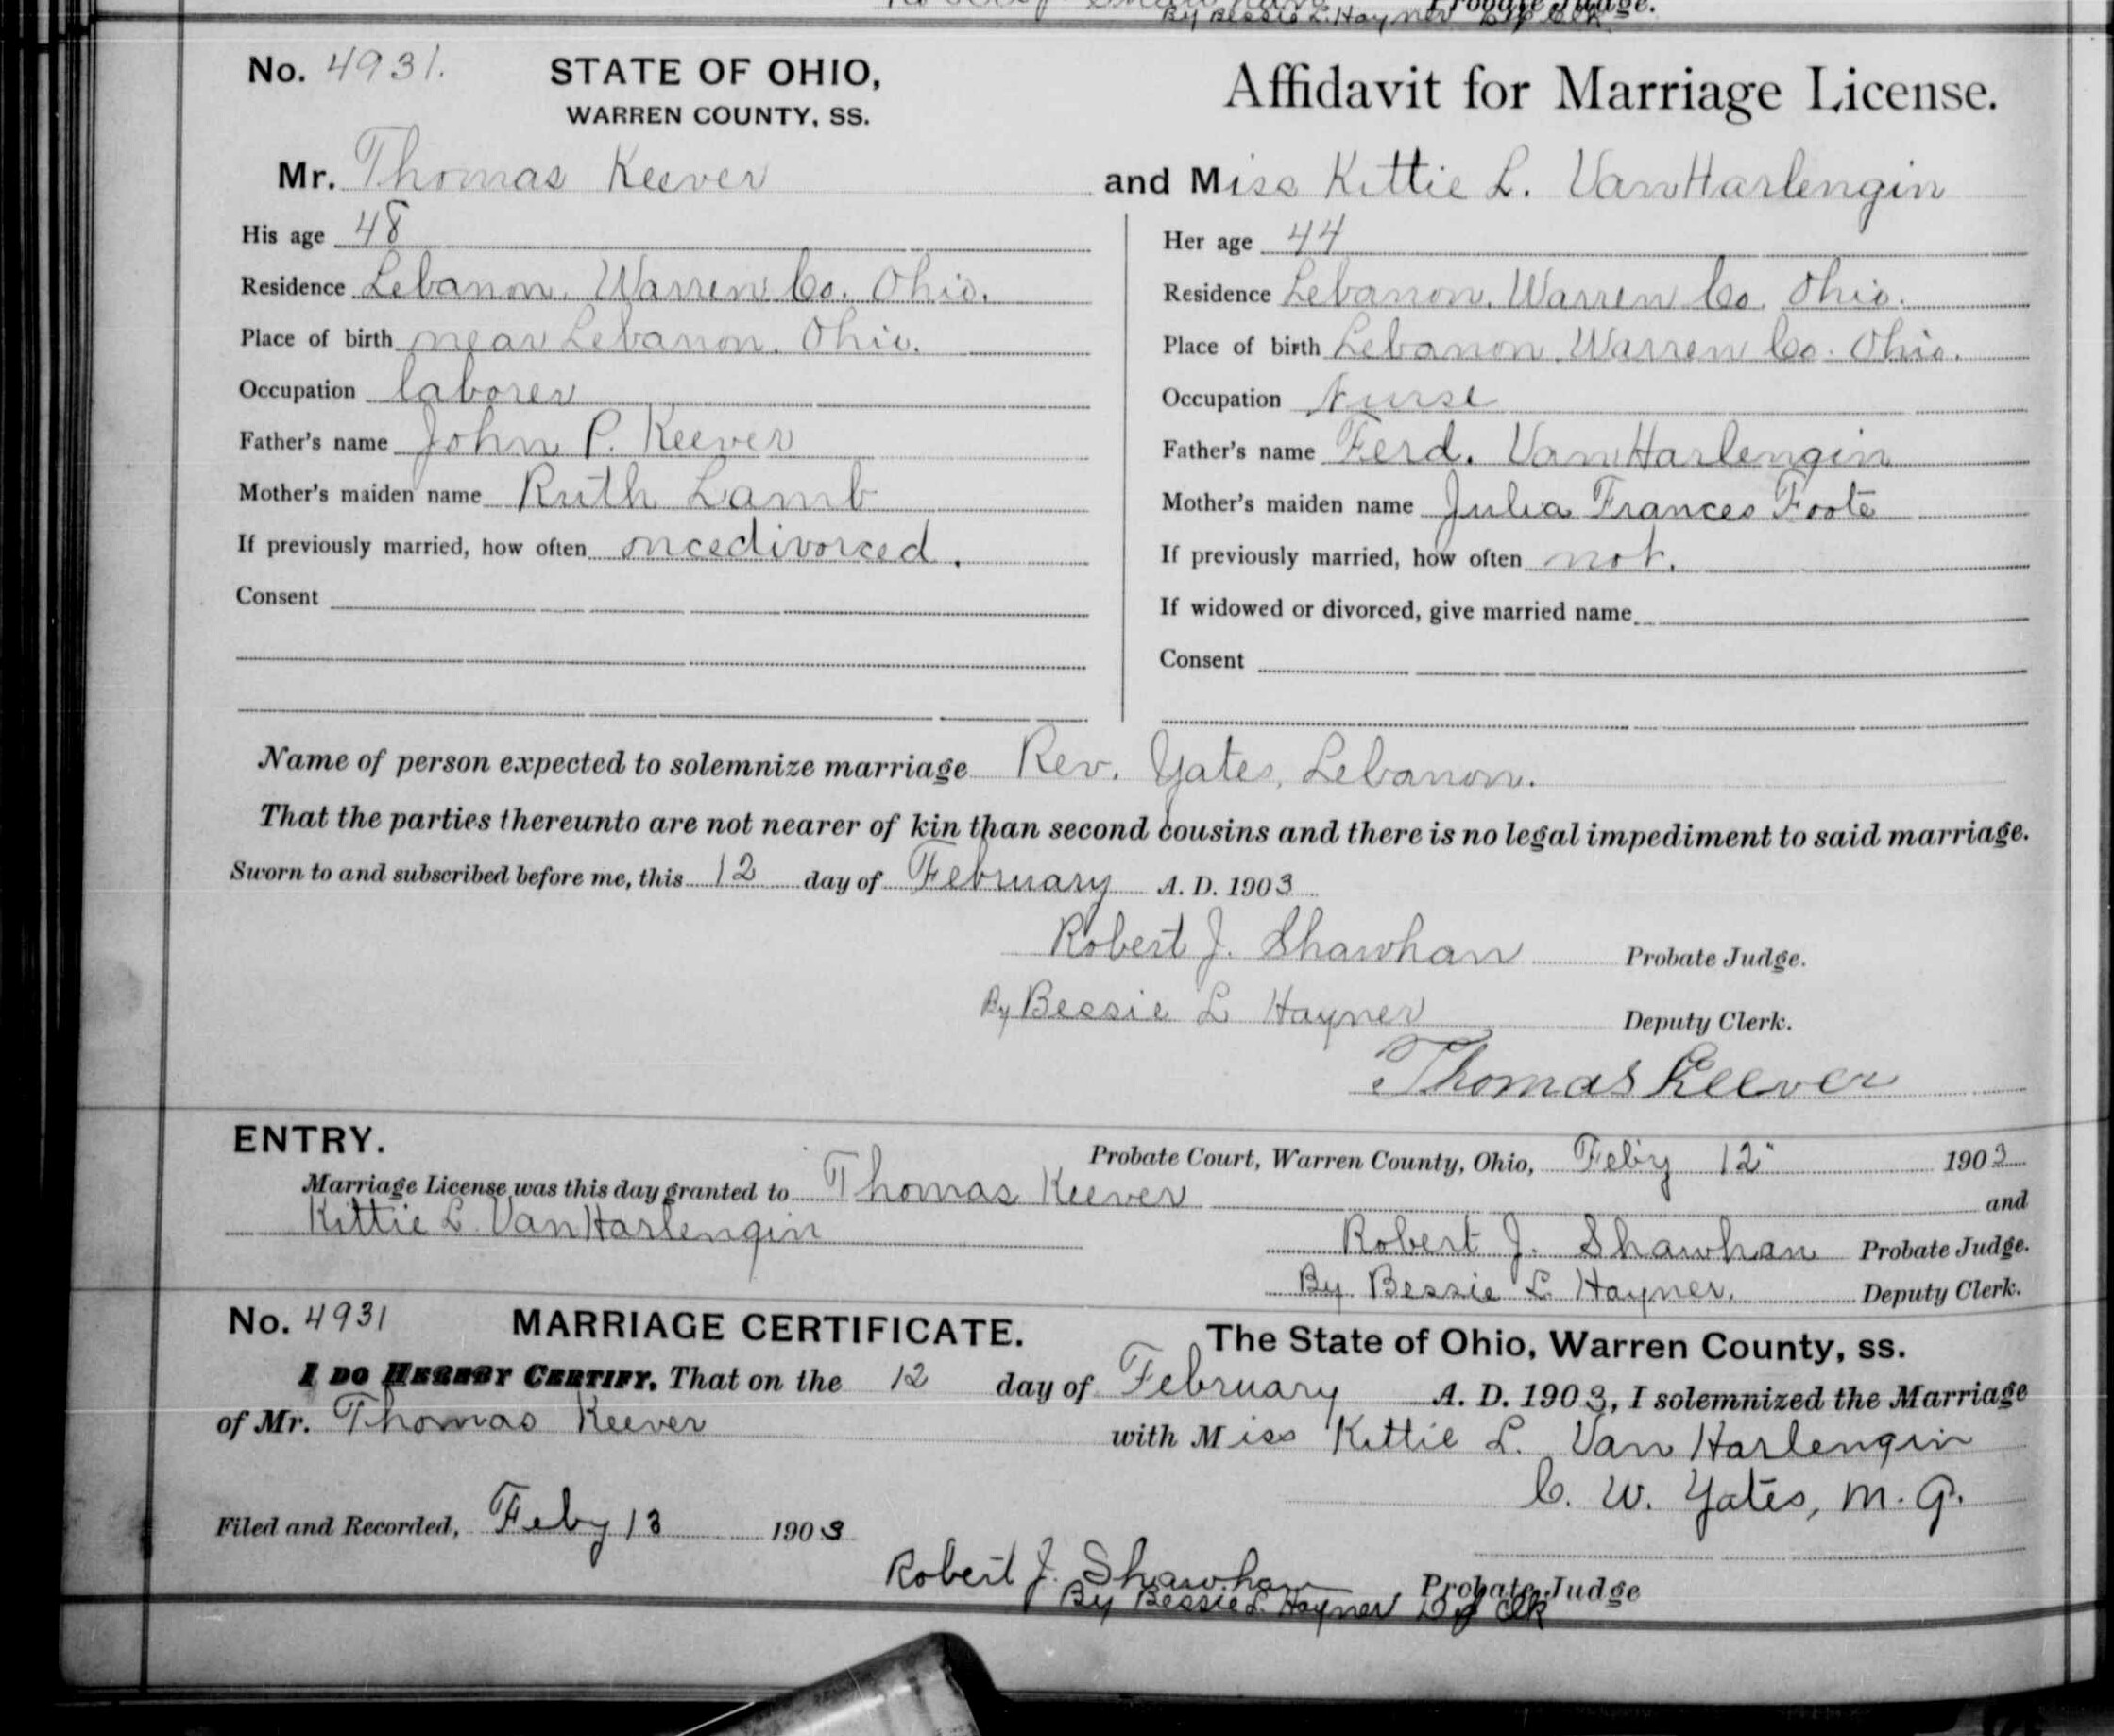 By Bessie L. Hayner Dep Clk
Probate Judge.
No. 4931. STATE OF OHIO, Affidavit for Marriage License.
WARREN COUNTY, SS.
Mr. Thomas Keever and Miss Kittie L. VanHarlengin
His age 48 Her age 44
Residence Lebanon. Warren Co. Ohio. Residence Lebanon. Warren Co. Ohio.
Place of birth near Lebanon. Ohio. Place of birth Lebanon. Warren Co. Ohio.
Occupation laborer Occupation Nurse
Father's name John P. Keever Father's name Ferd. VanHarlengin
Mother's maiden name Ruth Lamb Mother's maiden name Julia Frances Foote
If previously married, how often once divorced. If previously married, how often not.
Consent If widowed or divorced, give married name
Consent
Name of person expected to solemnize marriage Rev. Yates, Lebanon.
That the parties thereunto are not nearer of kin than second cousins and there is no legal impediment to said marriage.
Sworn to and subscribed before me, this 12 day of February A. D. 1903
Robert J. Shawhan Probate Judge.
By Bessie L Hayner Deputy Clerk.
Thomas Keever
ENTRY. Probate Court, Warren County, Ohio, Feby 12" 1903
Marriage License was this day granted to Thomas Keever and
Kittie L. VanHarlengin
Robert J. Shawhan Probate Judge.
By Bessie L. Hayner. Deputy Clerk.
No. 4931 MARRIAGE CERTIFICATE. The State of Ohio, Warren County, ss.
I DO HEREBY CERTIFY, That on the 12 day of February A. D. 1903, I solemnized the Marriage
of Mr. Thomas Keever with Miss Kittie L. Van Harlengin
C. W. Yates, M. G.
Filed and Recorded, Feby 13 1903
Robert J. Shawhan Probate Judge
By Bessie L. Hayner Dep Clk